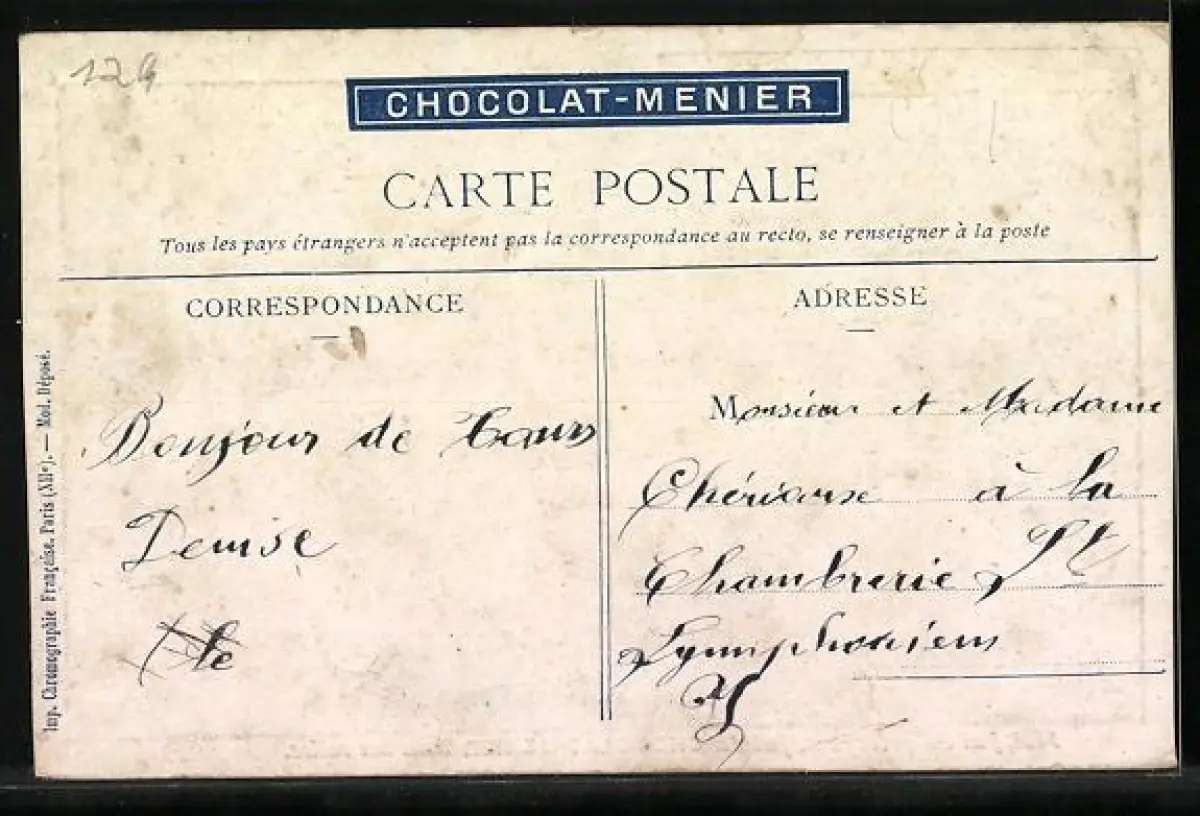 129
CHOCOLAT-MENIER
CARTE POSTALE
Tous les pays étrangers n'acceptent pas la correspondance au recto, se renseigner à la poste
CORRESPONDANCE
Bonjour de Tours
Denise
le
ADRESSE
Monsieur et Madame
à la
Chambrerie St
Symphorien
Imp. Chromographie Française. Paris (XIIe). — Mod. Déposé.